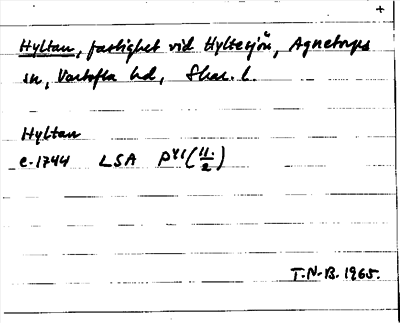 +
Hyltan, fastighet vid Hyltesjön, Agnetorps
sn, Vartofta hd, Skar. l.
Hyltan
c. 1744 LSA P VI (11:2)
T.N-B. 1965.